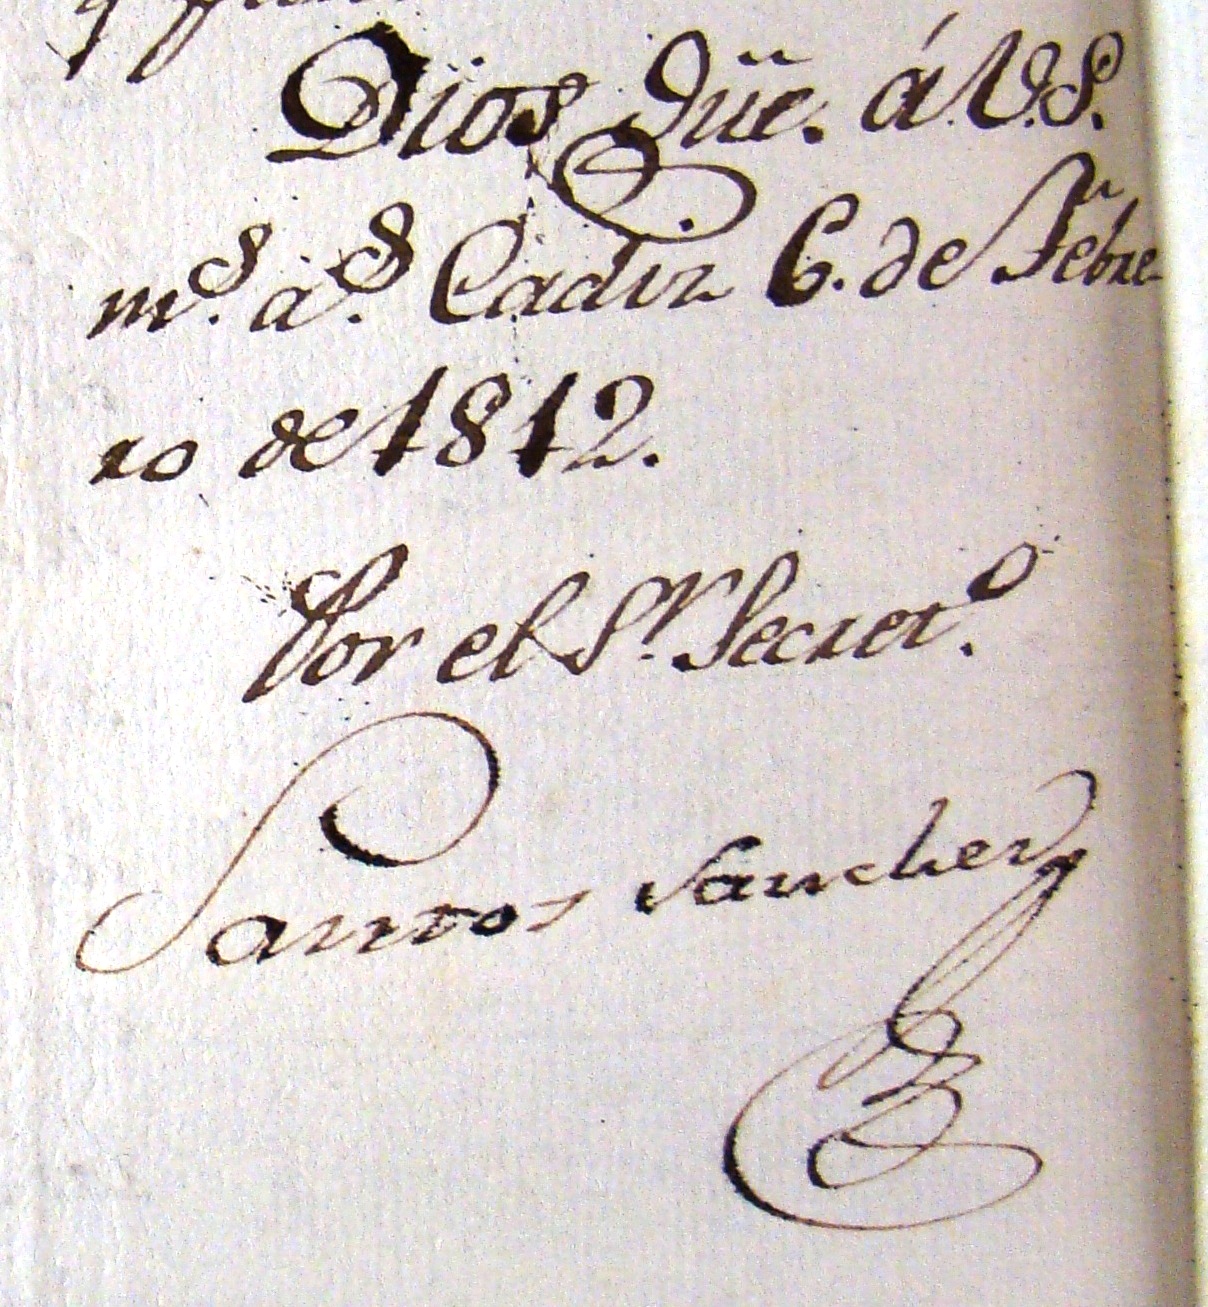 Dios güe. á V.S.
ms. as. Cadiz 6. de Febre
ro de 1812.
Por el Sr. Secreto.
Santos Sanchez